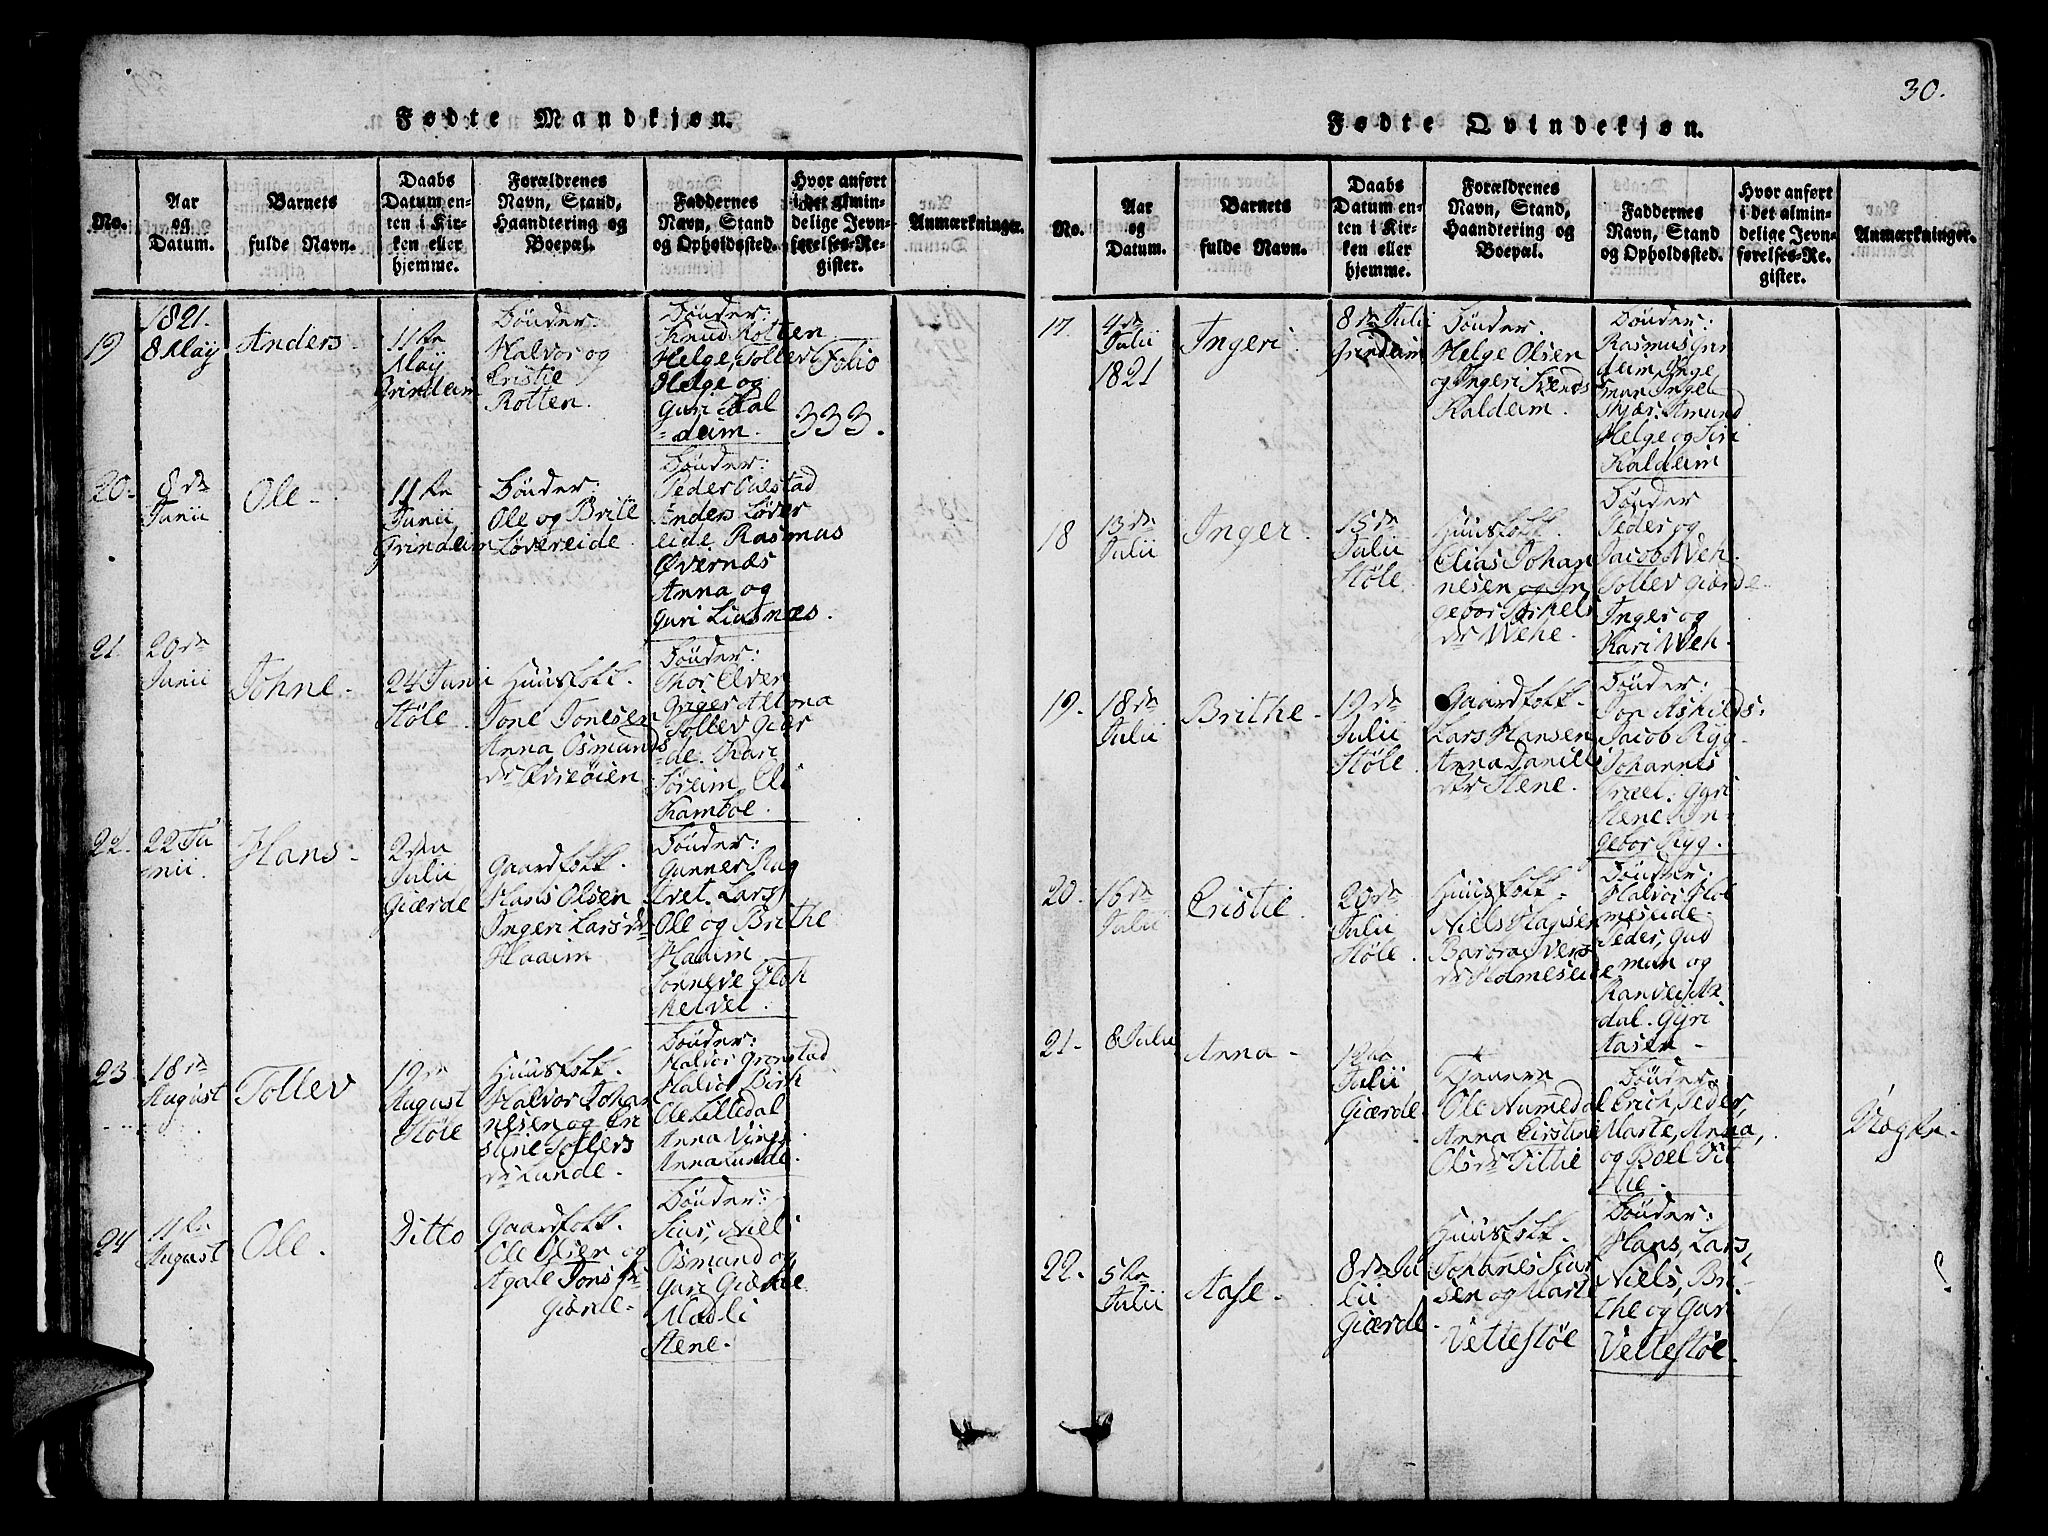 30.
Fødte Mandkjøn.
No.
Aar
og
Datum.
Barnets
fulde Navn.
Daabs
Datum en-
ten i Kir-
ken eller
hjemme.
Forældrenes
Navn, Stand,
Haandtering og
Boepæl.
Faddernes
Navn, Stand
og Opholdssted.
Hvor anført
i det almin-
delige Jevn-
førelses-Re-
gister.
Anmærkninger.
19
1821.
8 May
Anders.
11te
May
Grindeim
Bönder:
Halvor og
Cristie
Rotten.
Bönder:
Knud Rotten
Helge, Tollev
Helge og
Guri Kal
deim.
Folio
333.
20.
8de
Junii
Ole.
11te
Junii
Grindeim
Bönder:
Ole og Brite
Løvereide.
Bönder:
Peder
Anders Løver
eide Rasmus
Øvernæs
Anna og
Guri Liusnæs.
21.
20de
Junii
Johne.
24 Junii
Støle.
Huusfolk.
Jone Jonesen
Anna Osmunds
dr
Bönder:
Thor Elver
Tollev Giær
de. Kari
Søreim, Eli
Kamboe.
22.
22 Ju
nii.
Hans.
2den
Julii
Giærde
Gaardfolk.
Hans Olsen
Ingeri Larsdr
Haaim
Bönder:
Gunner Rug
tvet. Lars,
Ole og Brithe
Haaim
Sønneve
23.
18de
August
Tollev
19de
August
Støle
Huusfolk.
Halvor Johan
nesen og Cri
stine Tollevs
dr Lunde.
Bönder:
Halvor Grønstad
Halvor Birk
Ole Lilledal
Anna
Anna Lunde.
24
11te
August
Ole.
Ditto
Gaardfolk.
Ole Olsen og
Agate Jons
Giærde.
Bönder:
Siur, Nilli
Osmund og
Guri Giærde
Madli
Stene.
Fødte Qvindekjøn.
No.
Aar
og
Datum.
Barnets
fulde Navn.
Daabs
Datum en-
ten i Kir-
ken eller
hjemme.
Forældrenes
Navn, Stand,
Haandtering og
Boepæl.
Faddernes
Navn, Stand
og Opholdssted.
Hvor anført
i det almin-
delige Jevn-
førelses-Re-
gister.
Anmærkninger.
17.
4de
Julii
1821
Ingeri
8de Julii
Grindeim
Bönder.
Helge Olsen
og Ingeri Svends
Kaldeim.
Bönder:
Rasmus Grin
deim, Inge
Amund
Helge og Siri
Kaldeim
18
13de
Julii
Inger.
15de
Julii
Støle.
Huusfolk.
Elias Johan
nesen og In
gebor Torkels
dr Wehe.
Bönder
Peder og
Jacob Weh.
Tollev Giærde
Inger og
Kari Weh.
19.
18de
Julii
Brithe.
19de
Julii
Støle.
Gaardfolk.
Lars Hansen
Anna Daniels
dtr Stene.
Bönder:
Jon
Jacob Ryg
Johannes
Gyri
Stene. In
gebor Ryg.
20.
16de
Julii
Cristie.
20de
Julii
Støle.
Huusfolk.
Niels
Barbra Ivers
dr Holmeseide
Bönder:
Halvor Hol
meseide
Peder, Gud
man og
Ranvei
dal. Gyri
21.
8 Julii
Anna.
Julii
Giærde.
Tienere
Ole Aamedal
Anna Cirstine
Olsdr Vithie
Bönder
Erich, Peder,
Marte, Anna,
og Boel Vit
hie.
22.
5te
Julii
Aase.
8de Ju
lii
Giærde
Huusfolk.
Johanes Siur
sen og Marte
Vettestøe
Bönder:
Hans, Lars,
Niels, Bri
the og Guri
Vettestøe.